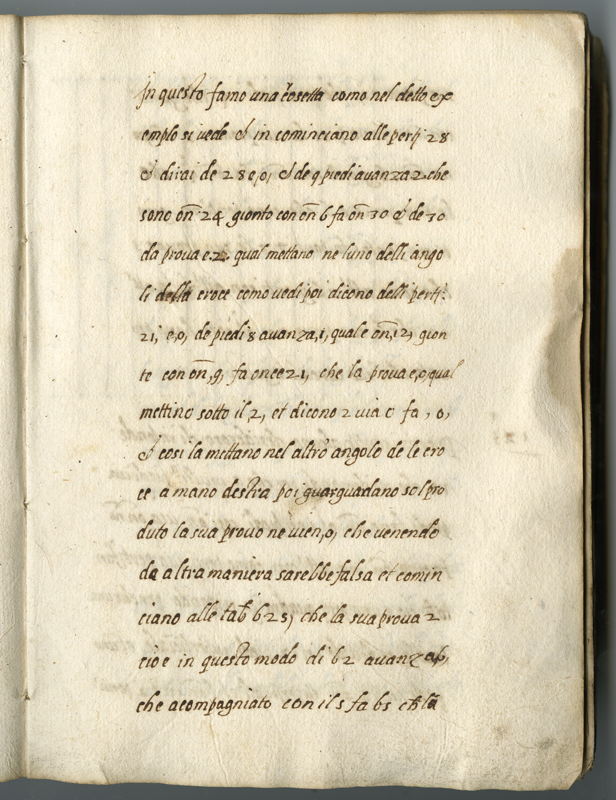 In questo famo una cosetta como nel detto ex
emplo si vede & in cominciano alle pertĩ 28
& dirai de 28 e,0, & de 9 piedi avanza 2 che
sono on̄ 24 gionto con on̄ 6 fa on̄ 30 & de 30
da prova e.2. qual mettano ne luno delli ango
li della croce como vedi poi dicono delli pertĩ:
21, e,0, de piedi 8 avanza,1, quale on̄,12, gion
te con on̄,9, fa once 21, che la prova e,0, qual
mettino sotto il,2, et dicono 2 via 0 fa ,0,
& cosi la mettano nel altro angolo de le cro
ce a mano destra poi guarguardano sol pro
duto la sua provo ne vien,0, che venendo
da altra maniera sarebbe falsa et comin
ciano alle tab̄ 625, che la sua prova 2
cioe in questo modo di 62 avanza 6,
che acompagniato con il 5 fa 65 ch̄ la